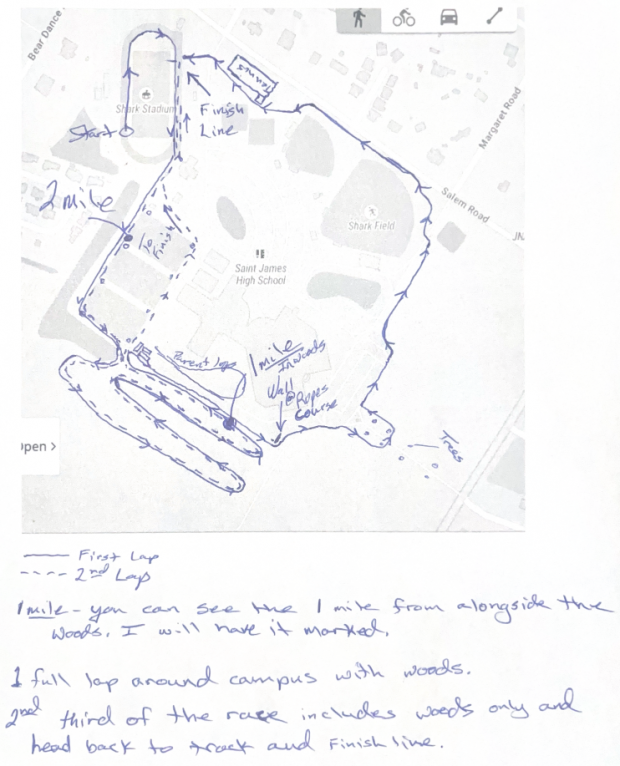 Bear Dance
Tennis
Shark Stadium
Finish
Line
Start
Margaret Road
Salem Road
2 mile
To
Finish
Shark Field
JN
Saint James
High School
Parent loop
1 mile
In woods
Wall
@ Ropes
Course
Trees
Open >
First Lap
2nd Lap
1 mile - you can see the 1 mile from alongside the
woods. I will have it marked.
1 full lap around campus with woods.
2nd third of the race includes woods only and
head back to track and Finish line.